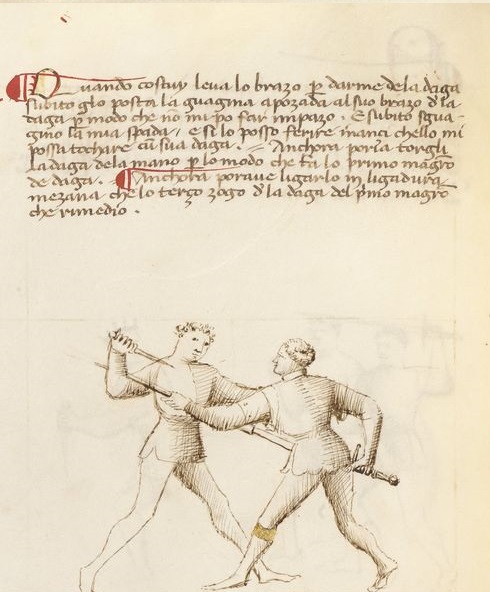 Quando costuy leva lo brazo p darme de la daga
subito glo posta la guagina apozada al suo brazo d la
daga p modo che no mi po far impazo. E subito sgua-
gino la mia spada, e si lo posso ferire inanci chello mi
possa tochare cu sua daga. Anchora poria torgli
la daga de la mano p lo modo che fa lo primo magro
de daga. Anchora porave ligarlo in ligadura
mezana che lo terzo zogo d la daga del pmo magro
che rimedio.